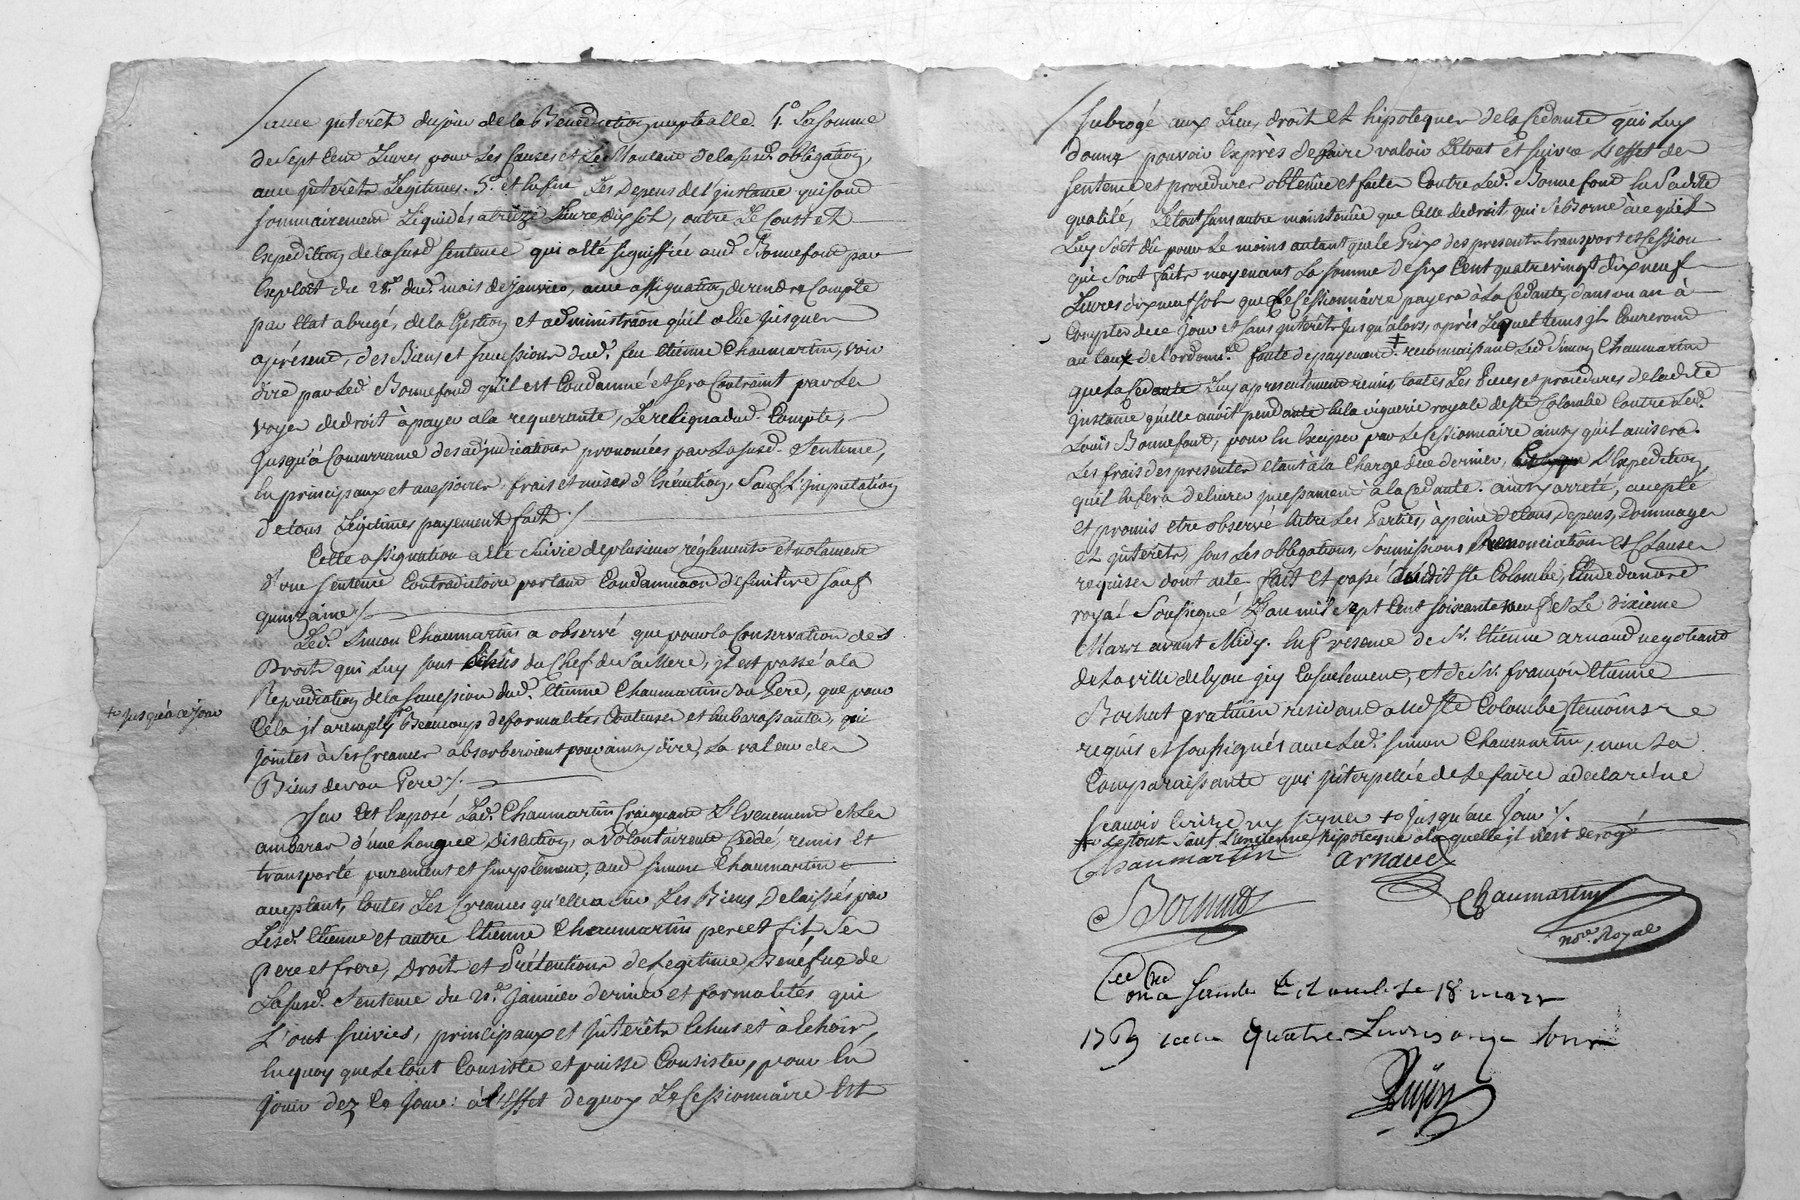 avec interêt du jour de la Bénédiction nuptialle. 4.° La somme
de sept Cent Livres pour les Causes et le Montant de la susd. obligation,
avec interêts Légitimes. 5.° et enfin Les Depens de l'instance qui sont
sommairement Liquidés a treize Livres dix sol, outre Le Coust et
Expedition de la susd. sentence qui a été signiffiée aud. Bonnefond par
Exploit du 28.e dud. mois de janvier, avec assignation de rendre Compte
par Etat abregé, de la Gestion et administration qu'il a Eüe jusques
a présent, des Biens et succession dud. feu Etienne Chaumartin, voir
dire par led. Bonnefond qu'il est Condamné et sera Contraint par les
voyes de droit à payer a la requerante, Le reliqua dud. Compte,
jusqu'à Concurrance des adjudications prononcées par la susd. sentence,
En principaux et accessoires, frais et mises d'Exécution, Sauf L'imputation
de tous Légitimes payement fait ./.
Cette assignation a été suivie de plusieurs réglements et notament
d'une sentence Contradictoire portant Condamnaon définitive sauf
quinzaine ./.
Led. Simon Chaumartin a observé que pour la Conservation des
Droits qui Luy sont Echus du Chef de sa Mere, il est passé a la
Repudiation de la succession dud. Etienne Chaumartin son Pere, que pour
Cela il a remply + Beaucoup de formalités Couteuses et Embarassantes, qui
+ jusqu'à ce jour
jointes à ses Creances absorberoient pour ainsy dire, La valeur des
Biens de son Pere ./.
Sur Cet Exposé Lad. Chaumartin Craignant L'Evenement et Les
ambaras d'une Longue Discution, a volontairement Ceddé, remis Et
transporté purement et simplement, aud. simon Chaumartin
acceptant, toutes Les Creances qu'elle a sur Les Biens Delaissés par
Lesd. Etienne et autre Etienne Chaumartin pere et fils ses
pere et frere, Droits et Prétentions de Legitime, Bénéfice de
La susd. Sentence du 21.e Janvier dernier et formalités qui
L'ont suivies, principaux et Interêts Echus et à Echoir,
En quoy que Le tout Consiste et puisse Consister, pour En
jouir dez Ce jour : à l'Effet de quoy Le Cessionnaire Est
subrogé aux Lieu, droit Et hipoteques de la Cedante qui Luy
donne pouvoir Exprès de faire valoir Le tout et suivre L'effet des
sentence et procedures obtenüe et faites Contre Led. Bonnefond En Sadite
qualité, Le tout sans autre maintenüe que Celle de droit qui se Borne à ce qu'il
Luy soit dû pour Le moins autant que le Prix des presents transport et Cession
qui sont faits moyenant La somme de six Cent quatre vingt dix neuf
Livres dix neuf sols que Le Cessionnaire payera à La Cedante, dans un an à
Compter de ce jour et sans interêt jusqu'alors, après Lequel tems il Coureront
au taux de l'ordonn.ce faute de payement + reconnaissant Led. Simon Chaumartin
que la Cedante Luy a presentement remis toutes Les Pieces et procedures de ladite
instance qu'elle avoit pendante En la viguerie royale de Ste Colombe Contre Led.
Louis Bonnefond, pour En Exciper par Le Cessionnaire ainsy qu'il avisera.
Les frais des presentes etant à la Charge de ce dernier, L'Expedition
qu'il En fera delivrer incessament à la Cedante. ainsy arreté, accepté
et promis etre observé Entre Les Parties, à peine de tous depens, Dommages
et interêts, sous Les obligations, soumissions, renonciation et Clauses
requises dont acte fait Et passé audit Ste Colombe, Etude du notre
royal Soussigné L'an mil sept Cent soixante neuf et Le dixieme
Mars avant Midy. En Présence de Sr. Etienne arnaud negotiand
de La ville de Lyon icy Casuelement, et de Sr. françois Etienne
Bochut pratitien residand aud. Ste Colombe, temoins
requis et soussignés avec Led. simon Chaumartin, non La
Comparaissante qui interpellée de Le faire a declaré ne
scavoir Ecrire ny signer + jusqu'au jour ./.
+ Le tout sauf L'ancienne hipoteque a laquelle il n'est derogé
Chaumartin arnaud
Bochut
Chaumartin
no.re Royal
a Ste Colombe Le 18 mars
1769 quatre Livres onze sous